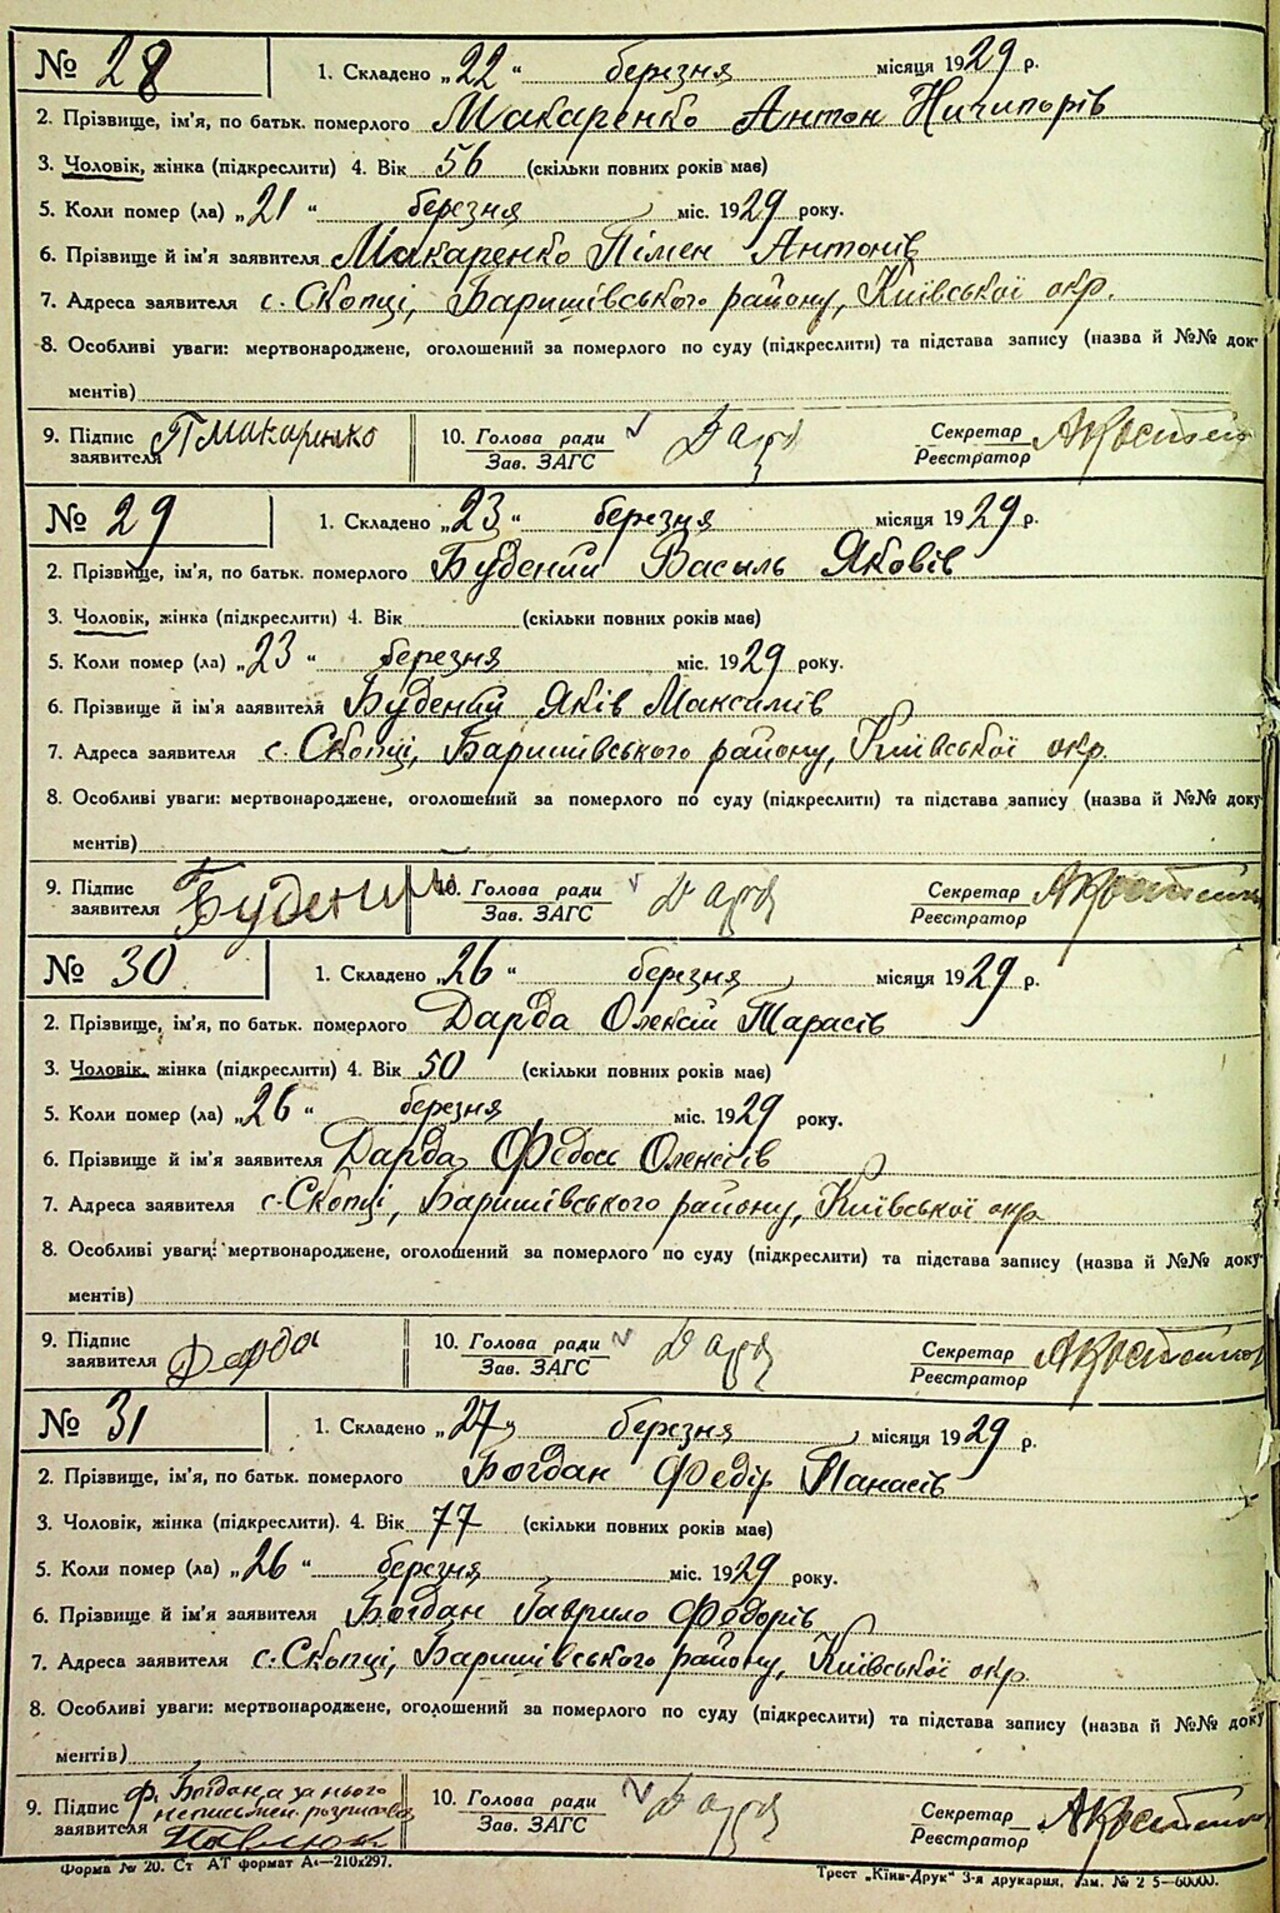 № 28 1. Складено „22“ березня місяця 1929 р.
2. Прізвище, ім'я, по батьк. померлого Макаренко Антон Ничипорів
3. Чоловік, жінка (підкреслити) 4. Вік 56 (скільки повних років має)
5. Коли помер (ла) „21“ березня міс. 1929 року.
6. Прізвище й ім'я заявителя Макаренко Пімен Антонів
7. Адреса заявителя с. Скопці, Баришівського району, Київської окр.
8. Особливі уваги: мертвонароджене, оголошений за померлого по суду (підкреслити) та підстава запису (назва й №№ док-
ментів)
9. Підпис заявителя П Макаренко 10. Голова ради Зав. ЗАГС Дарда Секретар Реєстратор
№ 29 1. Складено „23“ березня місяця 1929 р.
2. Прізвище, ім'я, по батьк. померлого Буденний Василь Яковів
3. Чоловік, жінка (підкреслити) 4. Вік (скільки повних років має)
5. Коли помер (ла) „23“ березня міс. 1929 року.
6. Прізвище й ім'я заявителя Буденний Яків Максимів
7. Адреса заявителя с. Скопці, Баришівського району, Київської окр.
8. Особливі уваги: мертвонароджене, оголошений за померлого по суду (підкреслити) та підстава запису (назва й №№ доку-
ментів)
9. Підпис заявителя 10. Голова ради Зав. ЗАГС Дарда Секретар Реєстратор
№ 30 1. Складено „26“ березня місяця 1929 р.
2. Прізвище, ім'я, по батьк. померлого Дарда Олексій Тарасів
3. Чоловік, жінка (підкреслити) 4. Вік 50 (скільки повних років має)
5. Коли помер (ла) „26“ березня міс. 1929 року.
6. Прізвище й ім'я заявителя Дарда Федось Олексіїв
7. Адреса заявителя с. Скопці, Баришівського району, Київської окр
8. Особливі уваги: мертвонароджене, оголошений за померлого по суду (підкреслити) та підстава запису (назва й №№ доку-
ментів)
9. Підпис заявителя Дарда 10. Голова ради Зав. ЗАГС Дарда Секретар Реєстратор
№ 31 1. Складено „27“ березня місяця 1929 р.
2. Прізвище, ім'я, по батьк. померлого Богдан Федір Панасів
3. Чоловік, жінка (підкреслити). 4. Вік 77 (скільки повних років має)
5. Коли помер (ла) „26“ березня міс. 1929 року.
6. Прізвище й ім'я заявителя Богдан Гаврило Федорів
7. Адреса заявителя с. Скопці, Баришівського району, Київської окр.
8. Особливі уваги: мертвонароджене, оголошений за померлого по суду (підкреслити) та підстава запису (назва й №№ доку
ментів)
9. Підпис заявителя Ф. Богдан, а за нього неписьмен. Павлюк 10. Голова ради Зав. ЗАГС Дарда Секретар Реєстратор
Форма № 20. Ст АТ формат А4—210х297. Трест „Київ-Друк“ 3-я друкарня, зам. №